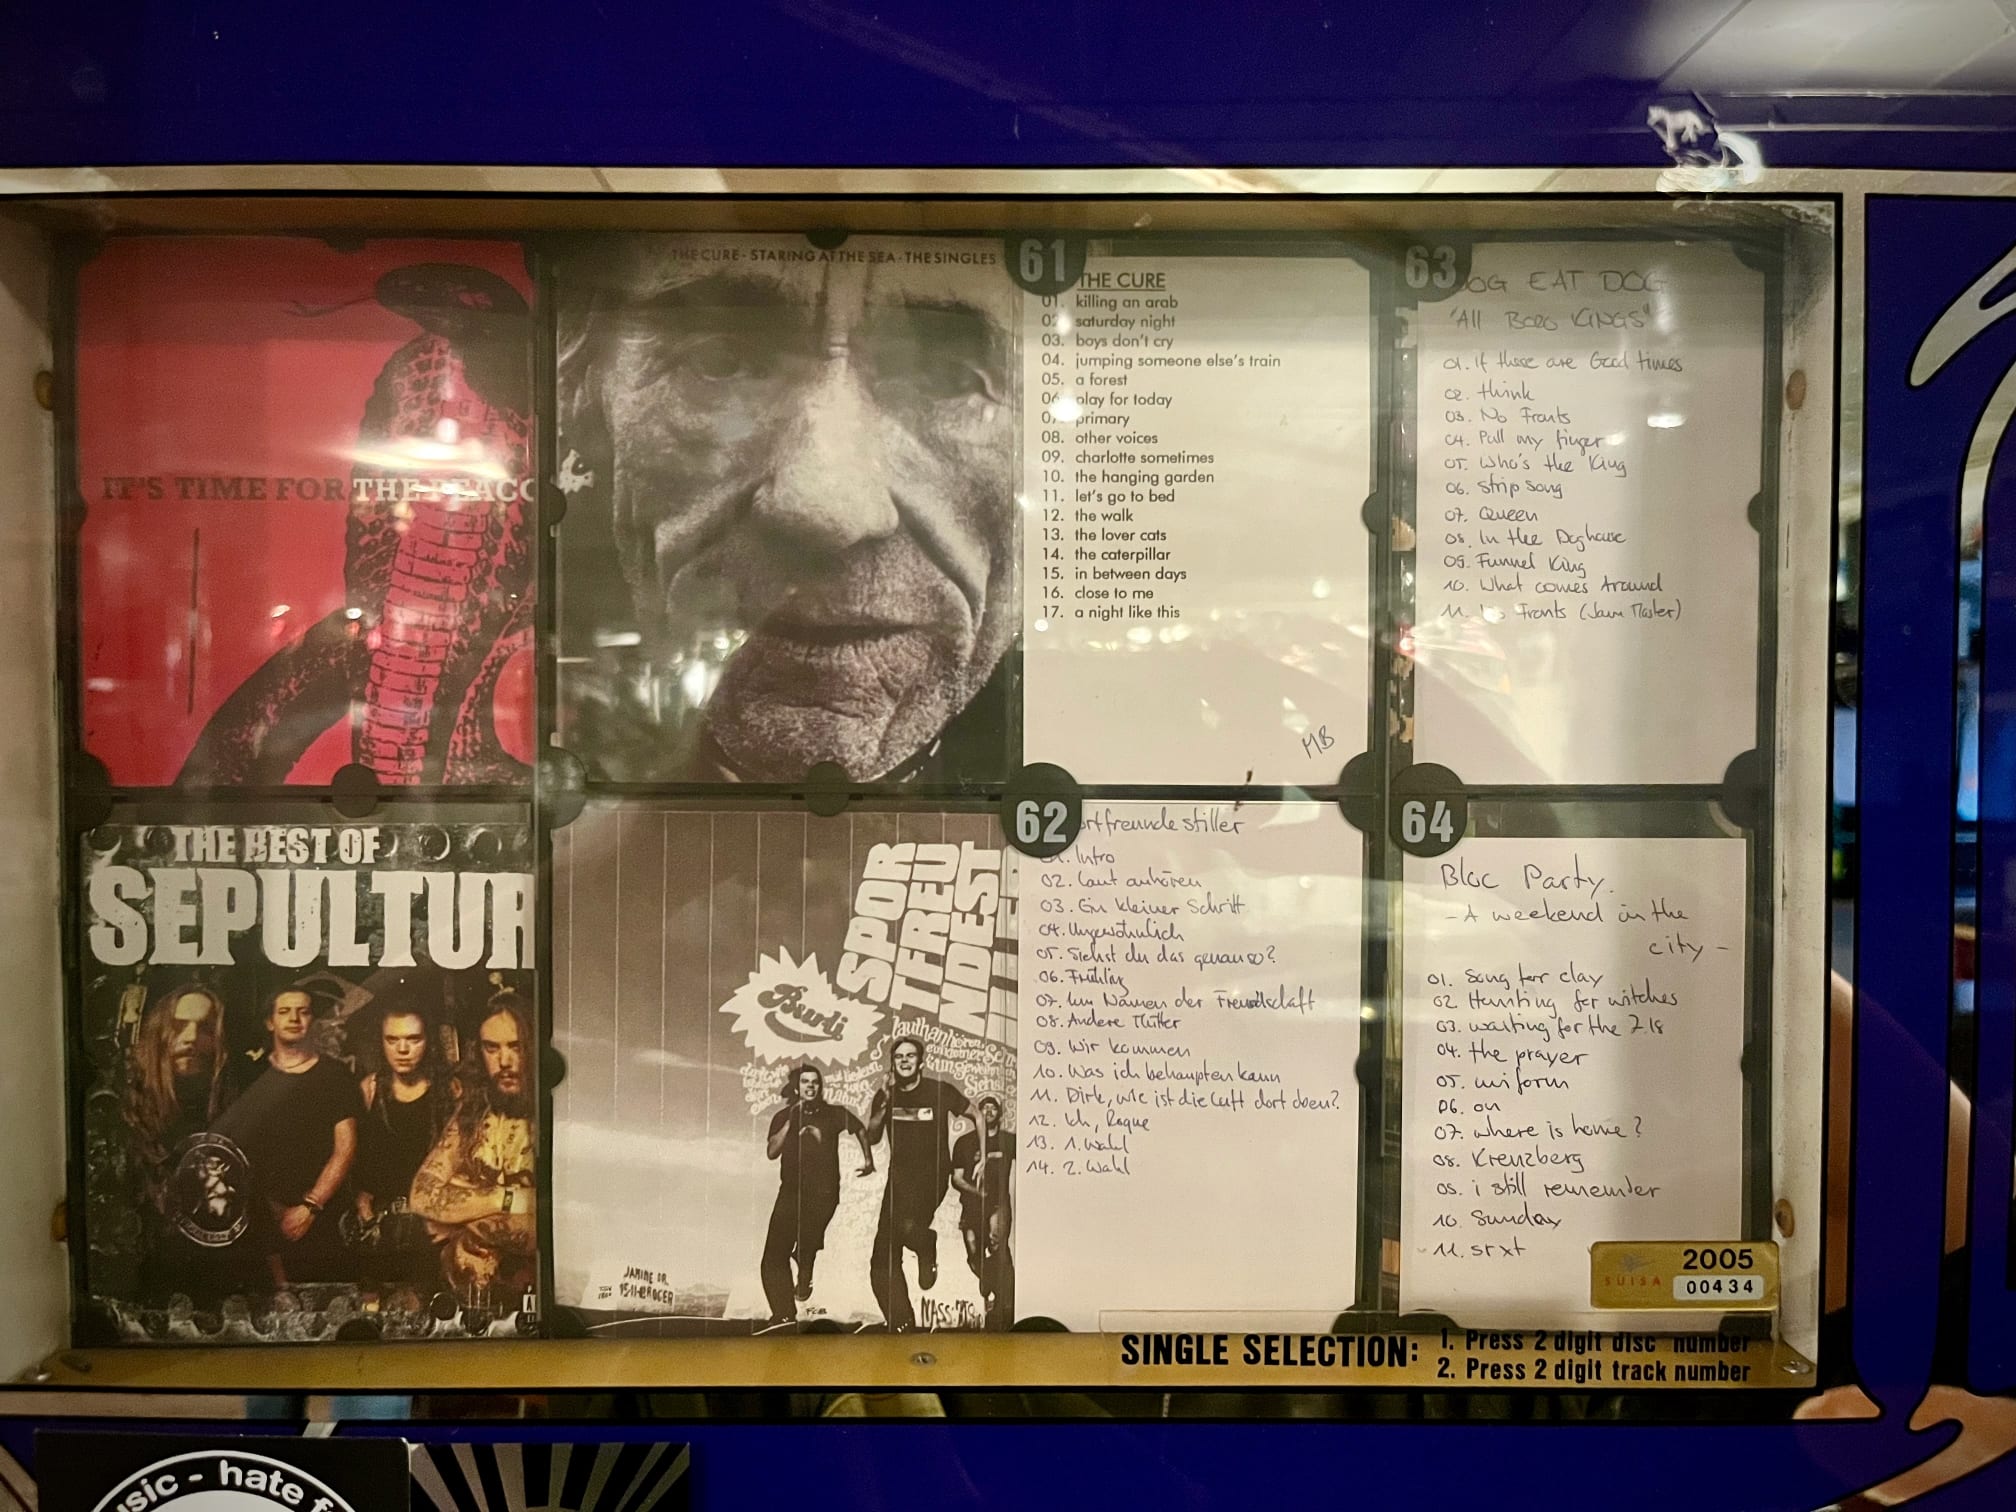 IT'S TIME FOR THE PEACO
THE CURE - STARING AT THE SEA - THE SINGLES
61
THE CURE
01. killing an arab
02. saturday night
03. boys don't cry
04. jumping someone else's train
05. a forest
06. play for today
07. primary
08. other voices
09. charlotte sometimes
10. the hanging garden
11. let's go to bed
12. the walk
13. the lover cats
14. the caterpillar
15. in between days
16. close to me
17. a night like this
MB
63
OG EAT DOG
"All Boro KINGS"
01. if these are Good times
02. think
03. No Fronts
04. Pull my finger
05. Who's the King
06. Strip Song
07. Queen
08. In the Doghouse
09. Funnel King
10. What comes Around
11. No Fronts (Jam Master)
THE BEST OF
SEPULTUR
SPOR
TFREU
NDEST
ILLER
Burli
JANINE DR.
NASS
62
ortfreunde stiller
01. Intro
02. Laut anhören
03. Ein kleiner Schritt
04. Ungewöhnlich
05. Siehst du das genauso?
06. Frühling
07. Im Namen der Freundschaft
08. Andere Mütter
09. Wir kommen
10. Was ich behaupten kann
11. Dirk, wie ist die Luft dort oben?
12. Ich, Roque
13. 1. Wahl
14. 2. Wahl
64
Bloc Party.
- A weekend in the
city -
01. Song for clay
02. Hunting for witches
03. waiting for the 7.18
04. the prayer
05. uniform
06. on
07. where is home?
08. Kreuzberg
09. i still remember
10. Sunday
11. srxt
SUISA
2005
00434
SINGLE SELECTION: 1. Press 2 digit disc number
2. Press 2 digit track number
usic - hate f